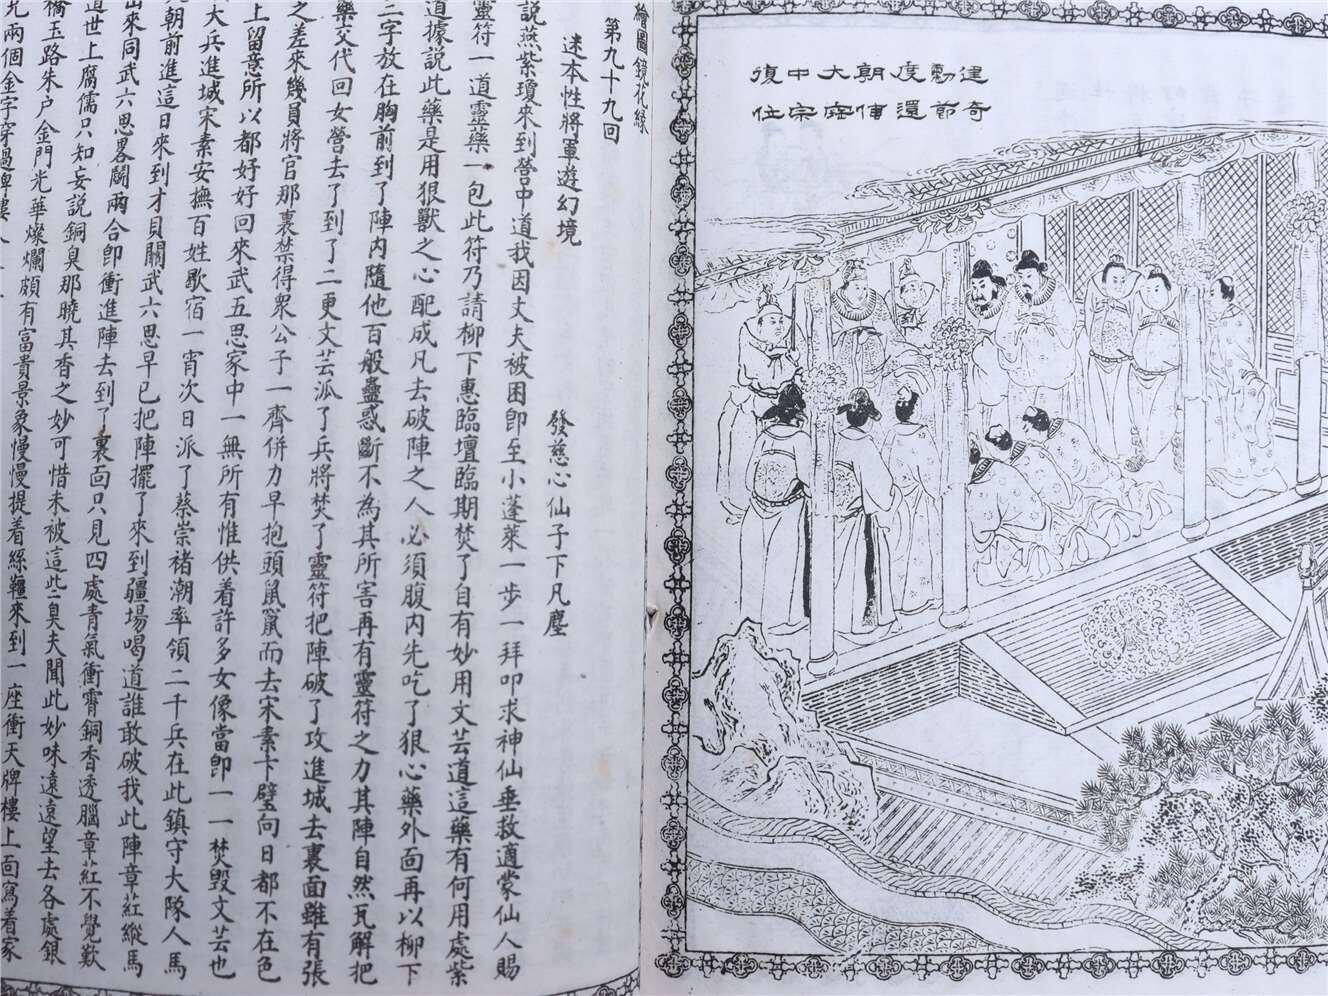 建奇
勳節
度還
朝傳
大寶
中宗
復位
繪圖鏡花緣
第九十九回
迷本性將軍遊幻境　發慈心仙子下凡塵
說燕紫瓊來到營中道我因丈夫被困即至小蓬萊一步一拜叩求神仙垂救適蒙仙人賜
靈符一道靈藥一包此符乃請柳下惠臨壇臨期焚了自有妙用文芸道這藥有何用處紫
道據說此藥是用狠獸之心配成凡去破陣之人必須腹內先吃了狠心藥外面再以柳下
三字放在胸前到了陣內隨他百般蠱惑斷不為其所害再有靈符之力其陣自然瓦解把
藥交代回女營去了到了二更文芸派了兵將焚了靈符把陣破了攻進城去裏面雖有張
之差來幾員將官那裏禁得眾公子一齊併力早抱頭鼠竄而去宋素卞璧向日都不在色
上留意所以都好好回來武五思家中一無所有惟供着許多女像當即一一焚毀文芸也
大兵進城宋素安撫百姓歇宿一宵次日派了蔡崇褚潮率領二千兵在此鎮守大隊人馬
朝前進這日來到才貝關武六思早已把陣擺了來到疆場喝道誰敢破我此陣章葒縱馬
出來同武六思畧鬭兩合即衝進陣去到了裏面只見四處青氣衝霄銅香透腦章葒不覺歎
道世上腐儒只知妄說銅臭那曉其香之妙可惜未被這些臭夫聞此妙味遠遠望去各處銀
橋玉路朱戶金門光華燦爛頗有富貴景象慢慢提着絲韁來到一座衝天牌樓上面寫着家
兄兩個金字穿過牌樓人